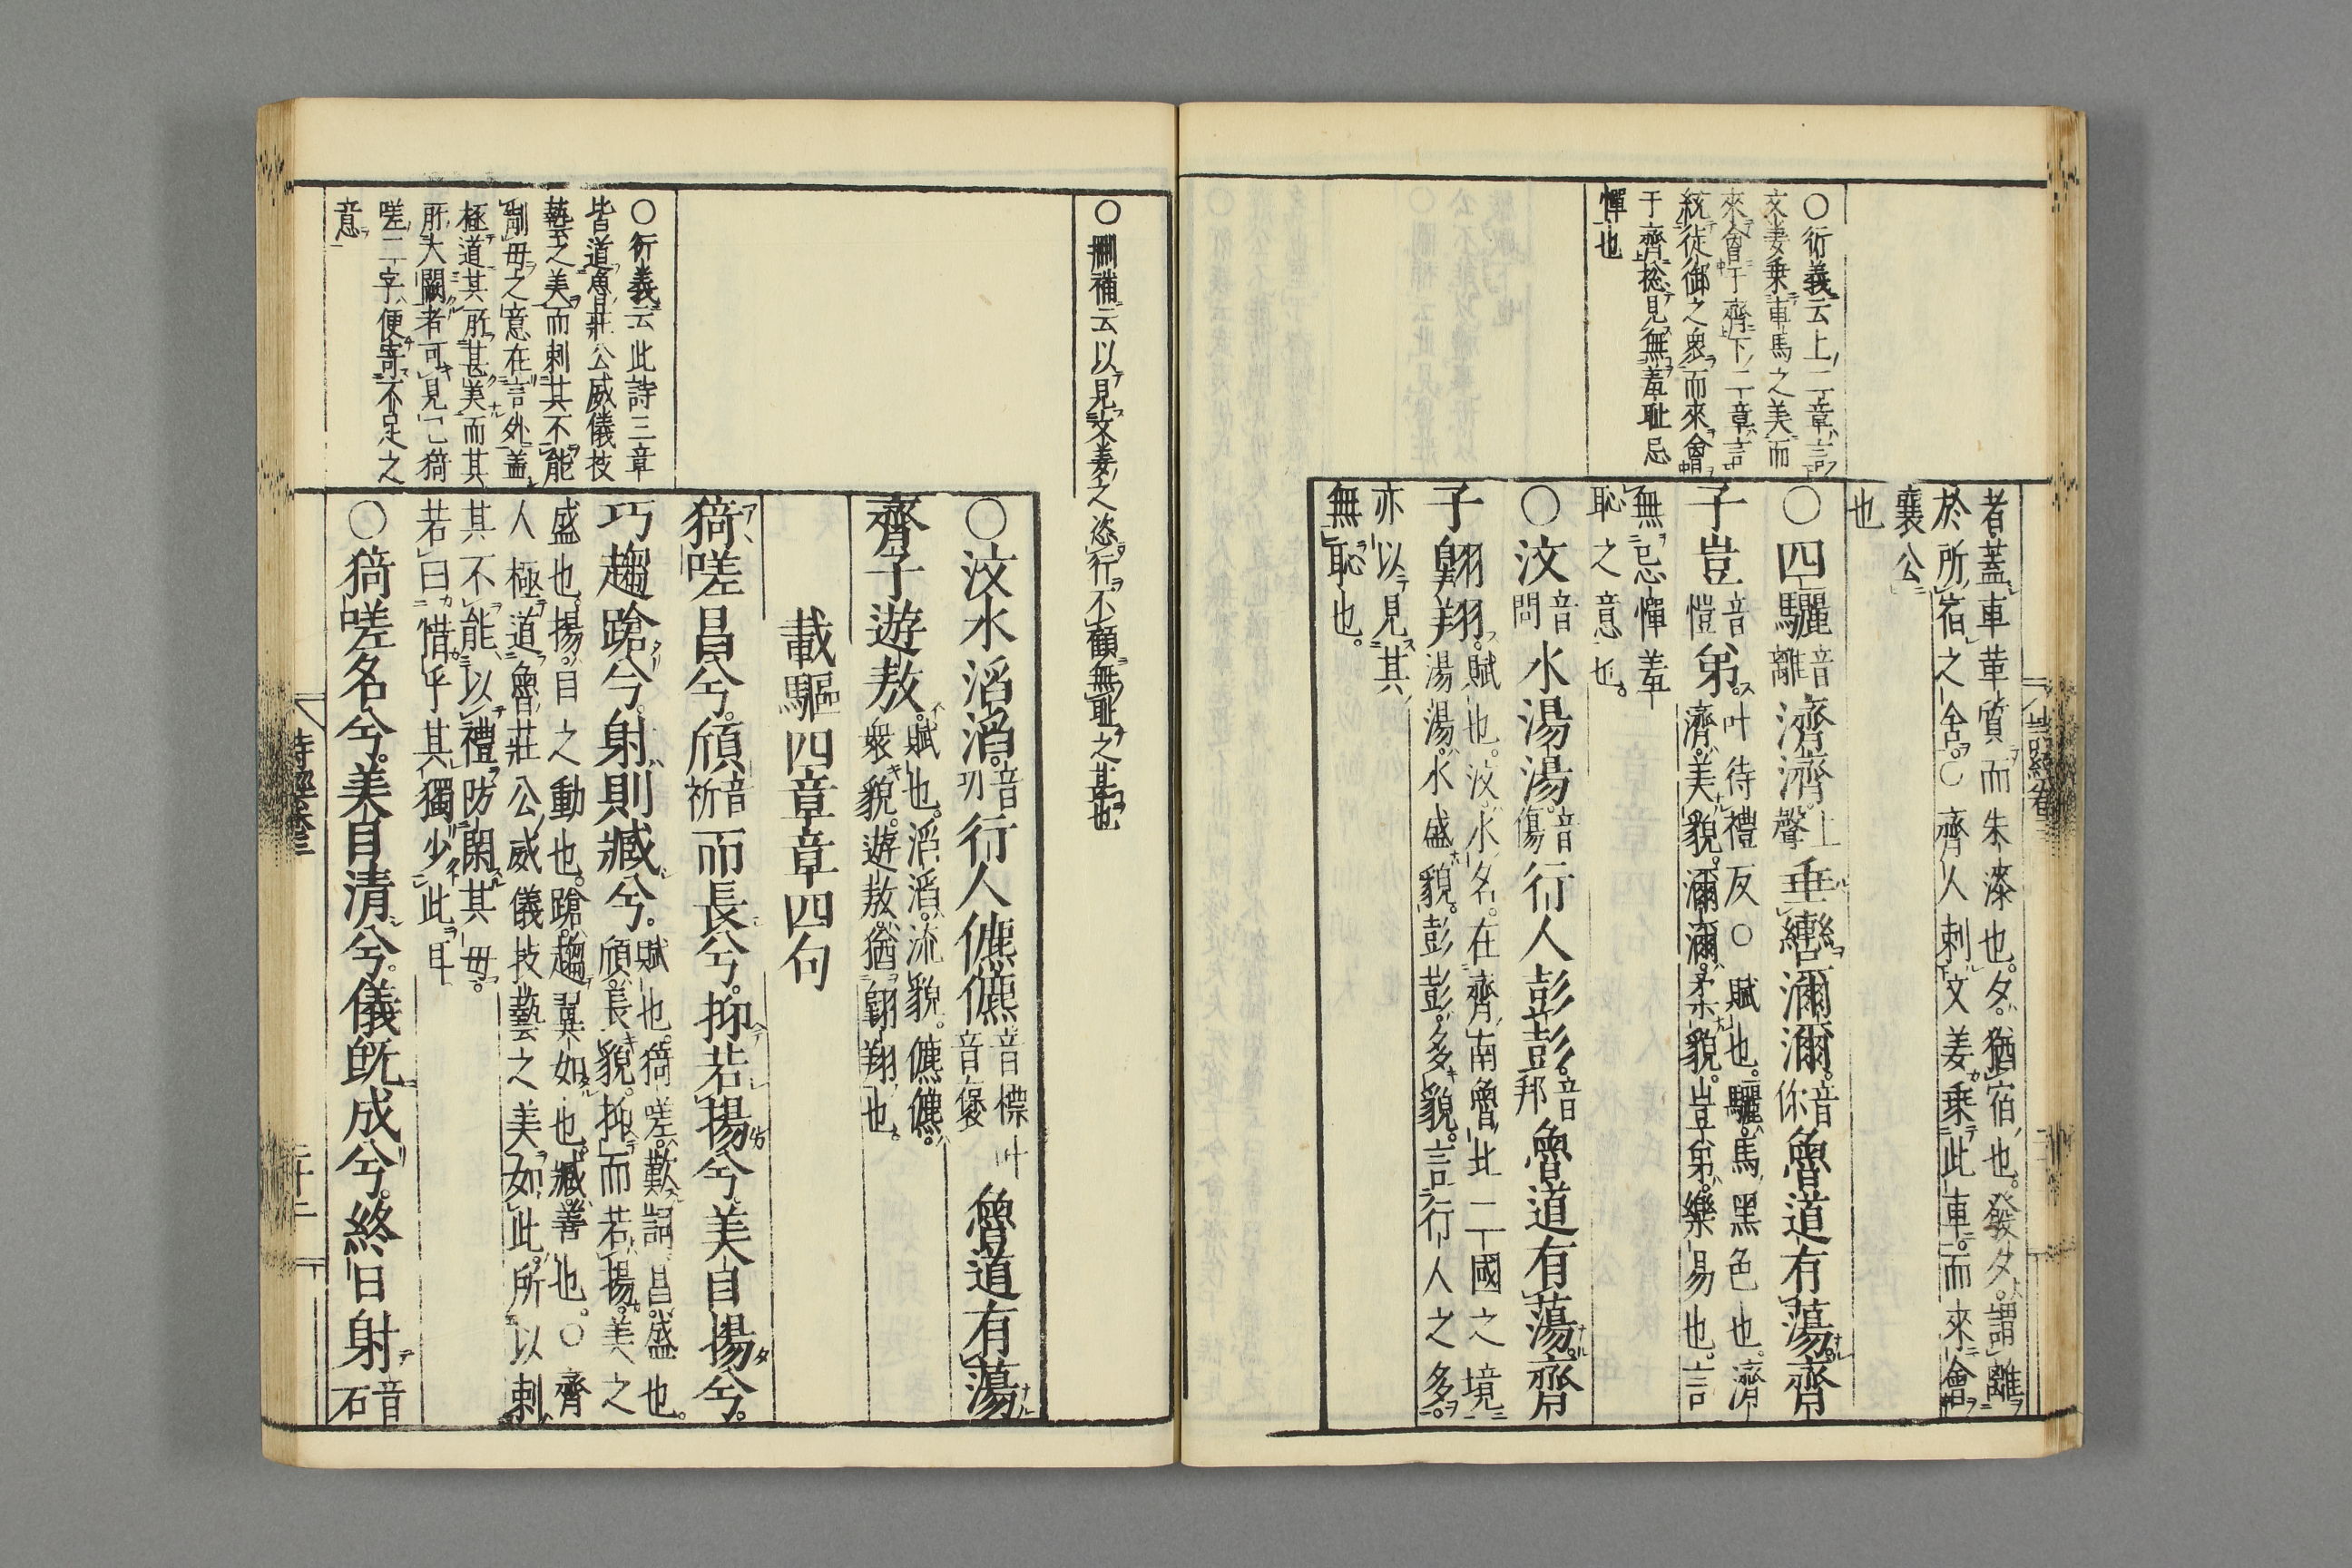 ○衍義云上二章言
文姜乗車馬之美而
來會于齊下二章言
統徒御之衆而來會
于齊揔見無羞耻忌
憚也
者蓋車革質而朱漆也。夕。猶宿也。發夕。謂離
於所宿之舎。○齊人刺文姜乗此車。而來會
襄公
也
○四驪音離濟濟。上聲垂轡瀰瀰。音你魯道有蕩。齊
子豈音愷弟。叶待禮反○賦也。驪。馬黑色也。濟
濟。美貌。瀰瀰。柔貌。豈弟。樂易也。言
無忌憚羞
恥之意也。
○汶音問水湯湯。音傷行人彭彭。音邦魯道有蕩。齊
子翺翔。賦也。汶。水名。在齊南魯北二國之境
湯湯。水盛貌。彭彭。多貌。言行人之多。
亦以見其
無恥也。
○刪補云以見文姜之恣行不顧無耻之甚也
○汶水滔滔。音叨行人儦儦音標叶音褒魯道有蕩
齊子遊敖。賦也。滔滔。流貌。儦儦。
衆貌。遊敖。猶翺翔也。
載驅四章章四句
○衍義云此詩三章
皆道魯莊公威儀技
藝之美而刺其不能
制母之意在言外盖
極道其所甚美而其
所大闕者可見已猗
嗟二字便寄不足之
意
猗嗟昌兮。頎音祈而長兮。抑若揚兮。美目揚兮。
巧趨蹌兮。射則臧兮。賦也。猗嗟。歎詞。昌。盛也。
頎。長貌。抑而若揚。美之
盛也。揚。目之動也。蹌。趨翼如也。臧。善也。○齊
人極道魯莊公威儀技藝之美如此。所以刺
其不能以禮防閑其母。
若曰惜乎其獨少此耳
○猗嗟名兮。美目清兮。儀既成兮。終日射音石
詩經卷三